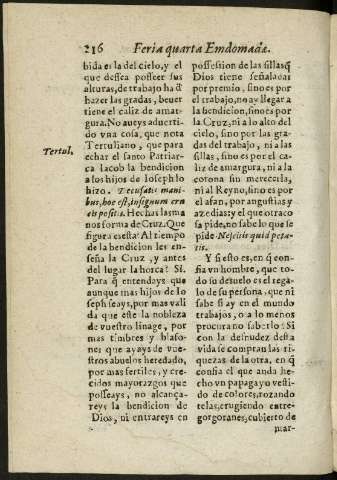 216 Feria quarta Emdomadæ.
bida es la del cielo, y el
que dessea posseer sus
alturas, de trabajo ha d̃
hazer las gradas, beuer
tiene el caliz de amar-
gura. No aueys aduerti-
do vna cosa, que nota
Tertuliano, que para
Tertul.
echar el santo Patriar-
ca Iacob la bendicion
a los hijos de Ioseph lo
hizo. Tecusatis mani-
bus, hoc est, insignum cru
cis positis. Hechas las ma
nos forma de Cruz. Que
figura es esta? Al tiempo
de la bendicion les en-
seña la Cruz, y antes
del lugar la horca? Si.
Para q̃ entendays que
aunque mas hijos de Io
seph seays, por mas vali
da que este la nobleza
de vuestro linage, por
mas timbres y blaso-
nes que ayays de vue-
stros abuelos heredado,
por mas fertiles, y cre-
cidos mayorazgos que
posseays, no alcança-
reys la bendicion de
Dios, ni entrareys en
possession de las sillas q̃
Dios tiene señaladas
por premio, sino es por
el trabajo, no ay llegar a
la bendicion, sino es por
la Cruz, ni a lo alto del
cielo, sino por las gra-
das del trabajo, ni a las
sillas, sino es por el ca-
liz de amargura, ni a la
corona sin merecerla,
ni al Reyno, sino es por
el afan, por angustias y
azedias: y el que otra co
sa pide, no sabe lo que se
pide Nescitis quid peta-
tis.
Y si esto es, en q̃ con-
fia vn hombre, que to-
da su desuelo es el rega-
lo de su persona, que ni
sabe si ay en el mundo
trabajos, o a lo menos
procura no saberlo? Si
con la desnudez desta
vida se compran las ri-
quezas de la otra, en q̃
confia el que anda he-
cho vn papagayo vesti-
do de colores, rozando
telas, crugiendo entre
gorgoranes, cubierto de
mar-